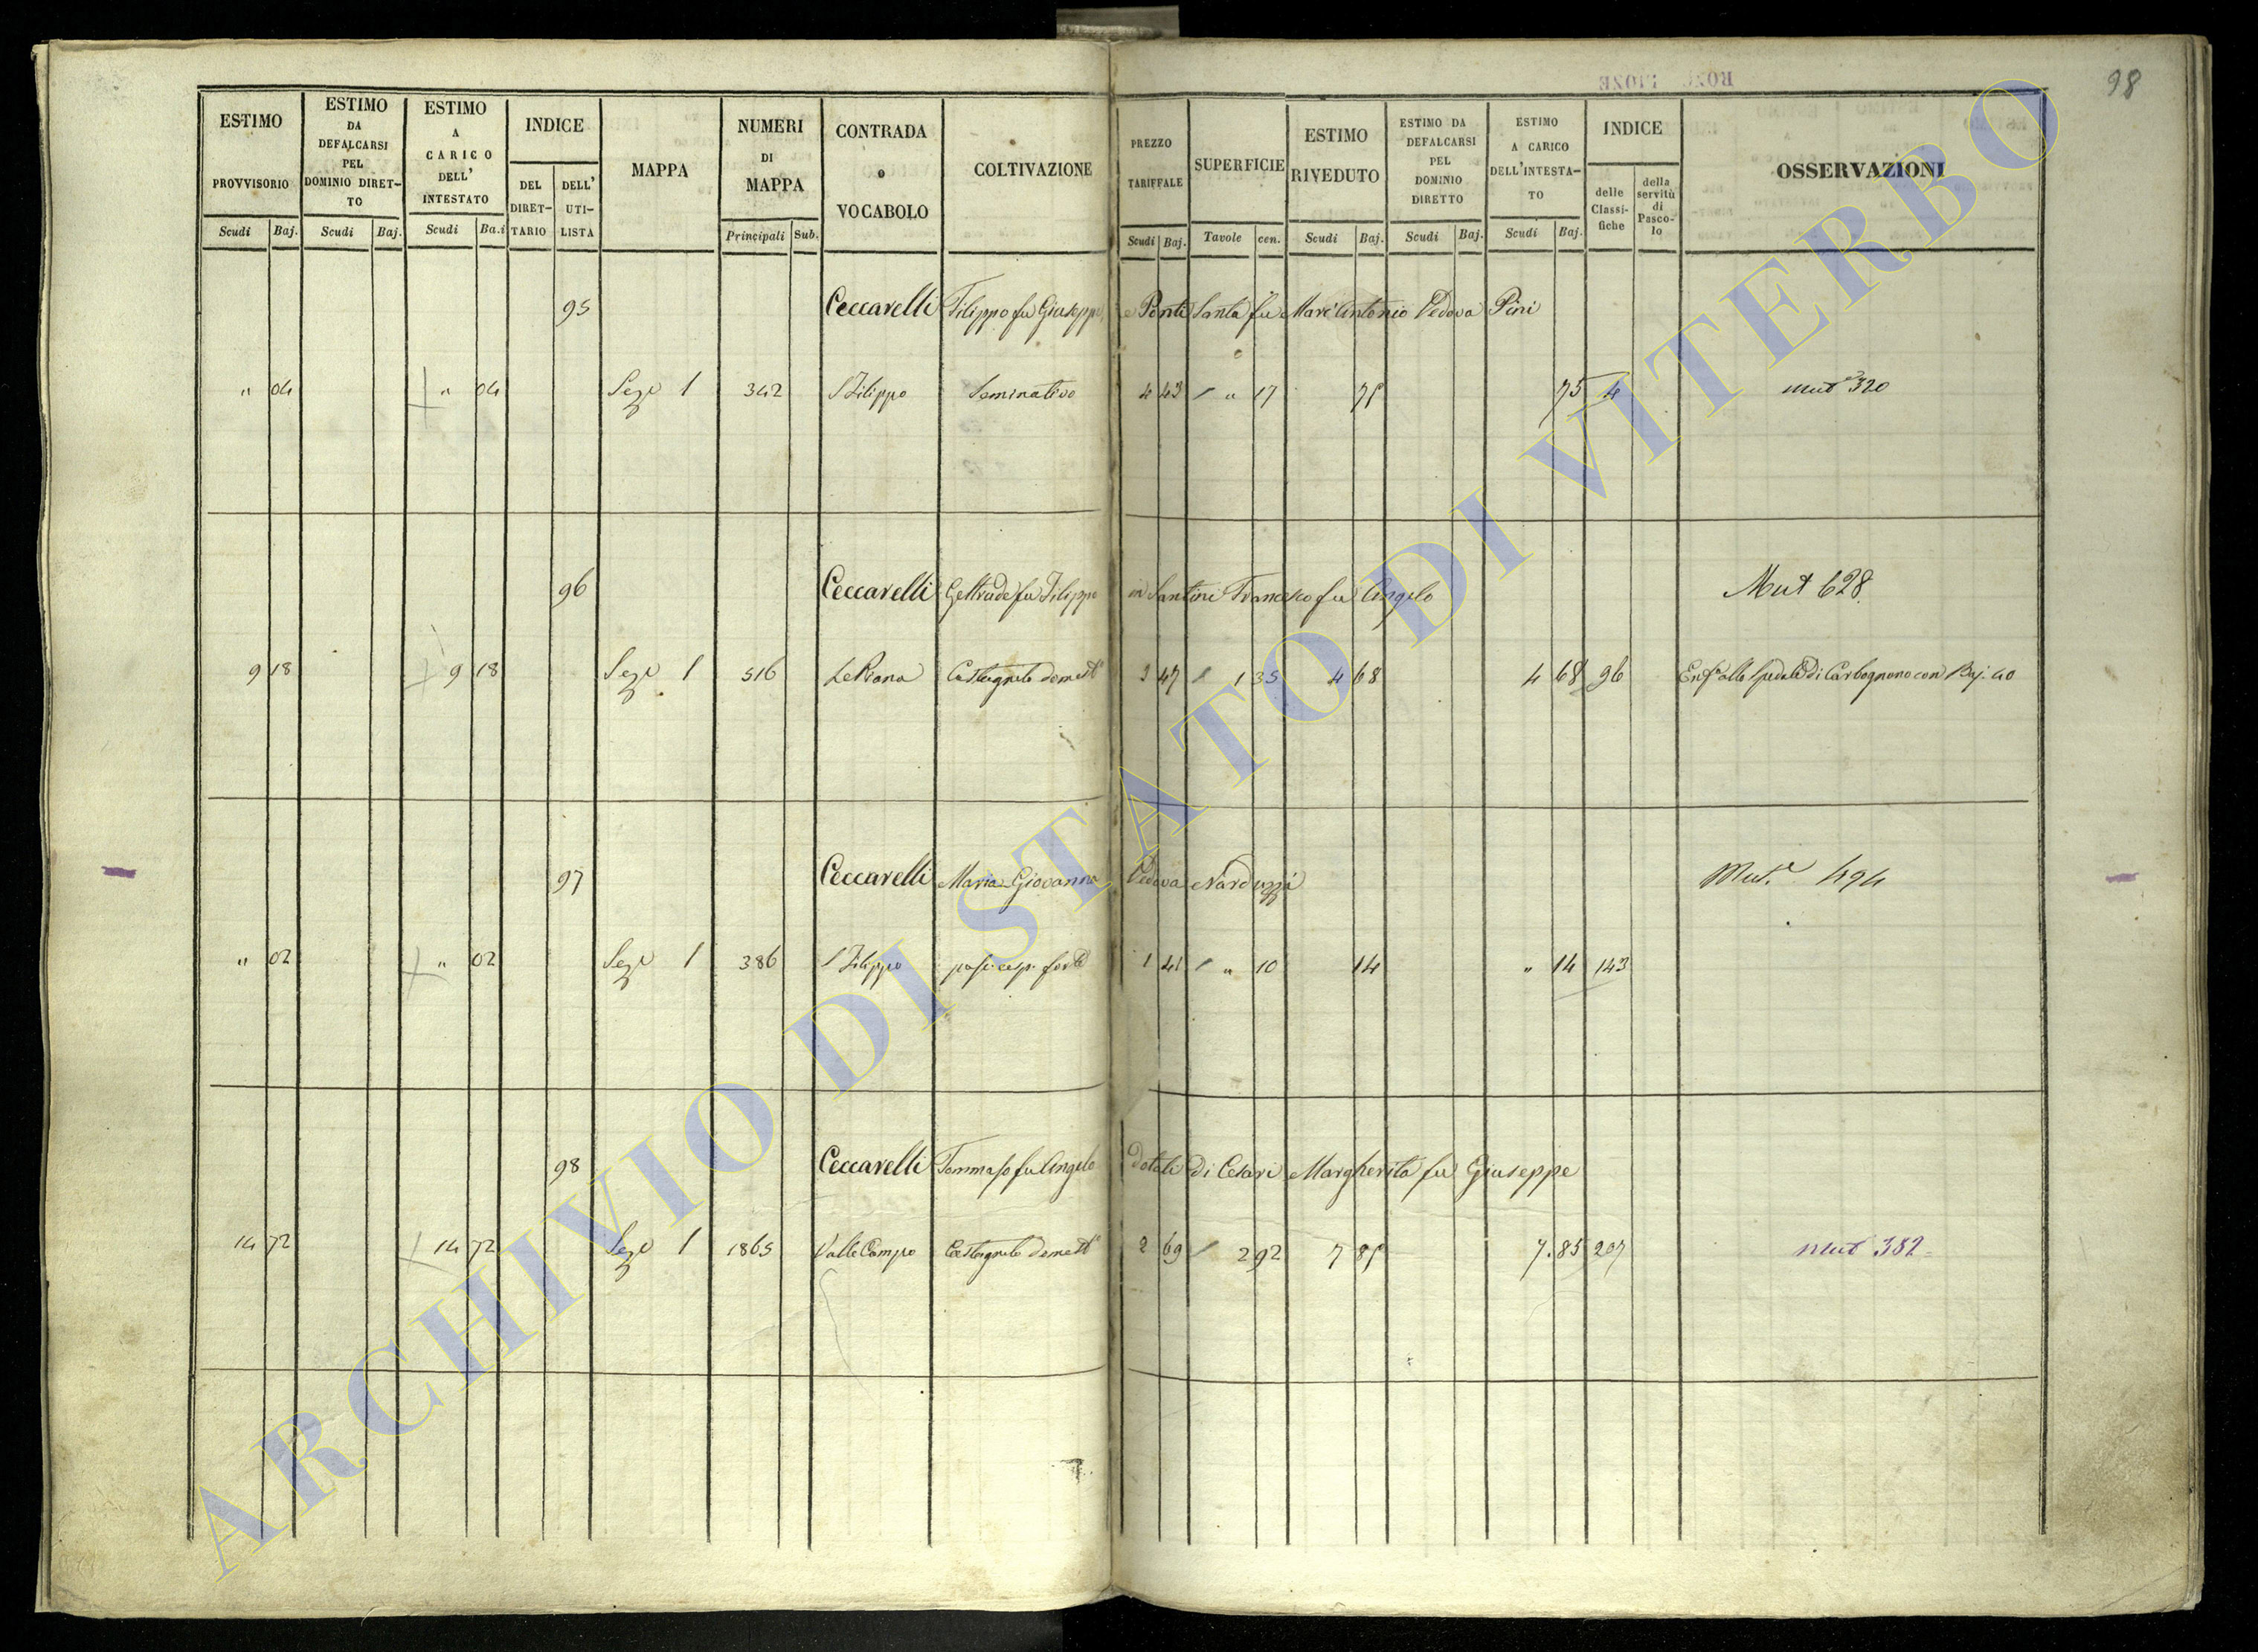 98
ESTIMO PROVVISORIO
ESTIMO DA DEFALCARSI PEL DOMINIO DIRETTO
ESTIMO A CARICO DELL' INTESTATO
INDICE
DEL DIRETTARIO
DELL' UTILISTA
MAPPA
NUMERI DI MAPPA
CONTRADA o VOCABOLO
COLTIVAZIONE
PREZZO TARIFFALE
SUPERFICIE
ESTIMO RIVEDUTO
ESTIMO DA DEFALCARSI PEL DOMINIO DIRETTO
ESTIMO A CARICO DELL'INTESTATO
INDICE
delle Classifiche
della servitù di Pascolo
OSSERVAZIONI
Scudi Baj. Scudi Baj. Scudi Ba.i Principali Sub. Scudi Baj. Tavole cen. Scudi Baj. Scudi Baj. Scudi Baj.
95 Ceccarelli Filippo fu Giuseppe, e Ponti Santa fu Marc'Antonio Vedova Pini
" 04 " 04 Sez. 1 342 S Filippo Seminativo 4 43 " 17 75 75 4 Mut.e 320
96 Ceccarelli Geltrude fu Filippo in Santini Francesco fu Angelo Mut 628
9 18 9 18 Sez. 1 516 Le Piana Castagneto domest.o 3 47 1 35 4 68 4 68 96 Enf.a allo Spedale di Carbognano con Baj. 40
97 Ceccarelli Maria Giovanna Vedova Narduzzi Mut.e 494
" 02 " 02 Sez. 1 386 S Filippo pasc. cesp. forte 1 41 " 10 14 " 14 143
98 Ceccarelli Tommaso fu Angelo Dotali di Cesari Margherita fu Giuseppe
14 72 14 72 Sez. 1 1865 Valle Campo Castagneto domest.o 2 69 2 92 7 85 7.85 207 Mut 382
ARCHIVIO DI STATO DI VITERBO